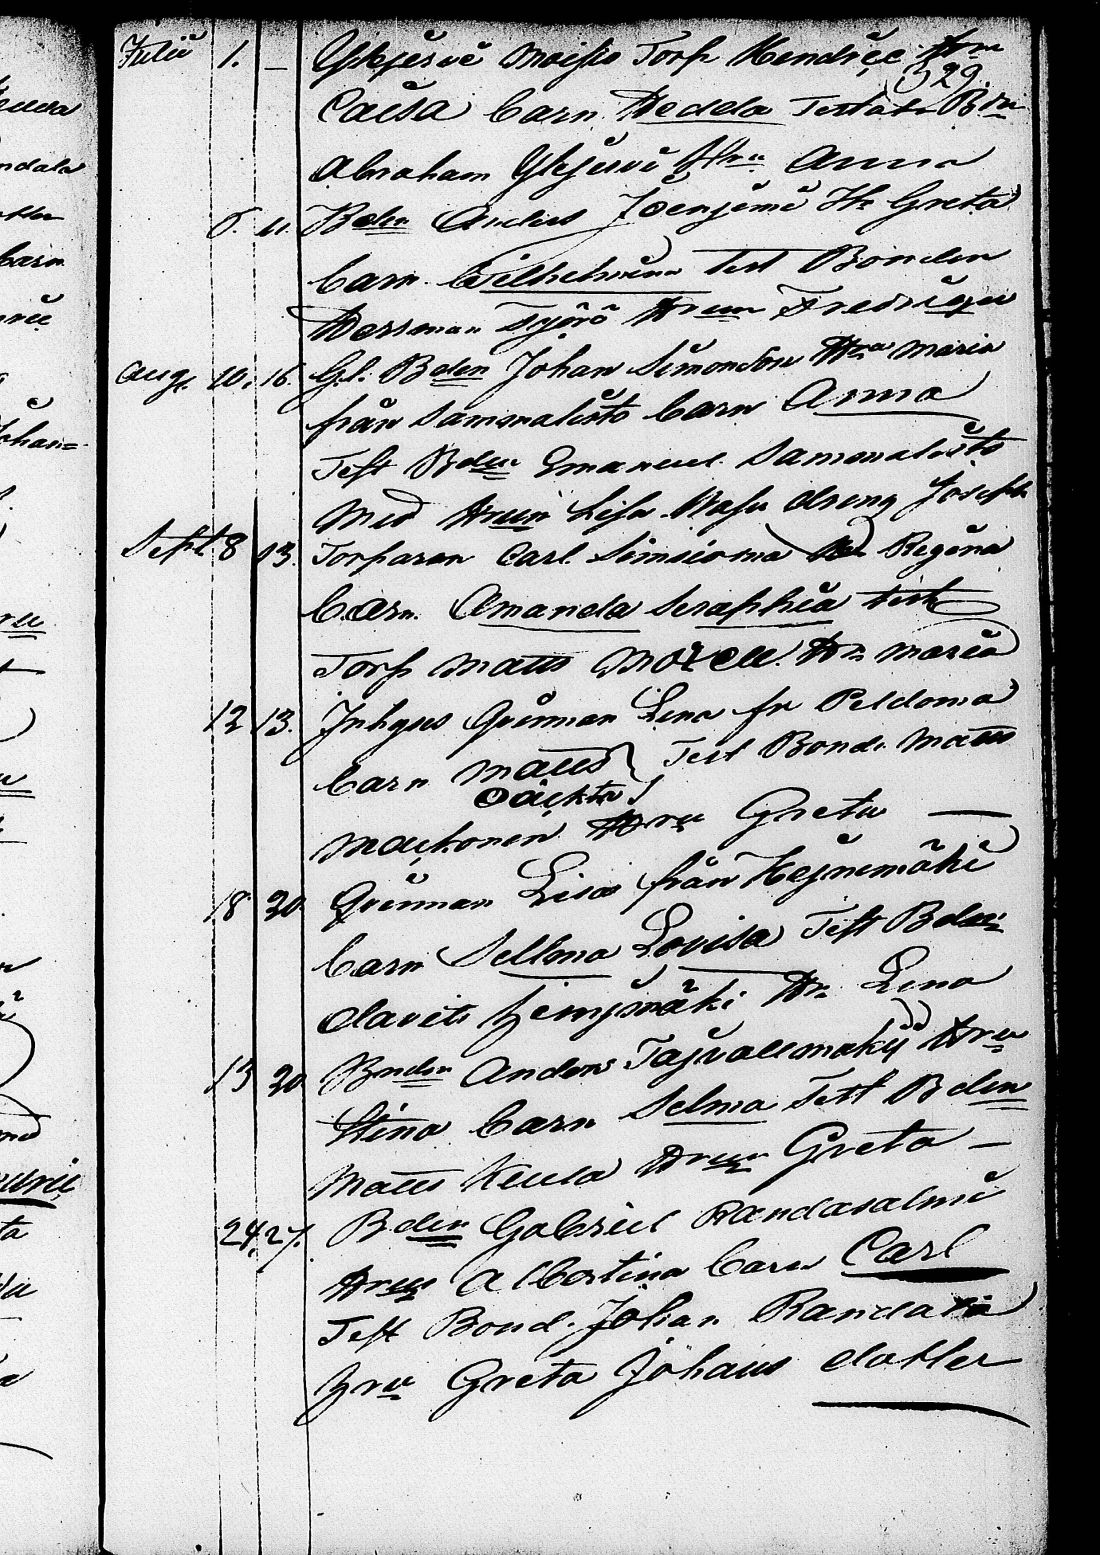 Julii 1. — Ylyjervi Moisio Torp Hendric Hru
329.
Caisa barn Hedda Testat Bdn
Abraham Ylijervi Hru Anna
5. 11. Bden Anders Joenjemi Hr Greta
barn Wilhelmina test Bonden
Herman Työrö Hrun Fredrica
Aug. 10. 16. Gl. Bden Johan Simonson Hru Maria
från Sammalisto barn Anna
Test Bden Emanuel Sammalisto
Med Hrun Lisa dreng Joseph
Sept. 8 13. Torparen Carl Simsioma Regina
barn Amanda Seraphia test
Torp Matts Hru Maria
12 13. Inhyses Qvinnan Lena fr Peldoma
barn Matts } Test Bond. Matts
oäckta
Mackonen Hru Greta —
18 20 Qvinnan Lisa från Hejnemäki
barn Sellma Lovisa Test Bden
David Hejnjmäki Hr. Lena
13 20 Bnden Anders Tajvallmakij Hru
Stina barn Selma Test Bden
Matts Keula Hrun Greta —
24. 27. Bden Gabriel Randasalmi
Hrun Albertina barn Carl
Test Bond. Johan Randala
Hru Greta Johans dotter